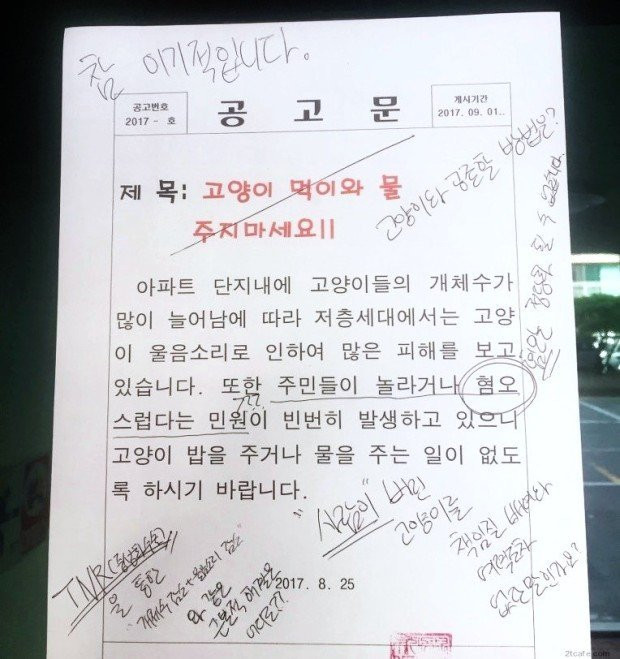 참 이기적입니다.
공고번호
2017 - 호
공 고 문
게시기간
2017. 09. 01..
제 목: 고양이 먹이와 물
주지마세요!!
고양이와 공존할 방법은?
혐오는 정당화 될 수 없습니다.
아파트 단지내에 고양이들의 개체수가
많이 늘어남에 따라 저층세대에서는 고양
이 울음소리로 인하여 많은 피해를 보고
있습니다. 또한 주민들이 놀라거나 혐오
스럽다는 민원이 빈번히 발생하고 있으니
고양이 밥을 주거나 물을 주는 일이 없도
록 하시기 바랍니다.
"사람이" 버린
고양이를
책임질
없는말인가요?
TNR(중성화수술)
을 통한
"개체수 감소 + 울음소리 감소"
와 같은
근본적 해결은
2017. 8. 25
2tcafe.com